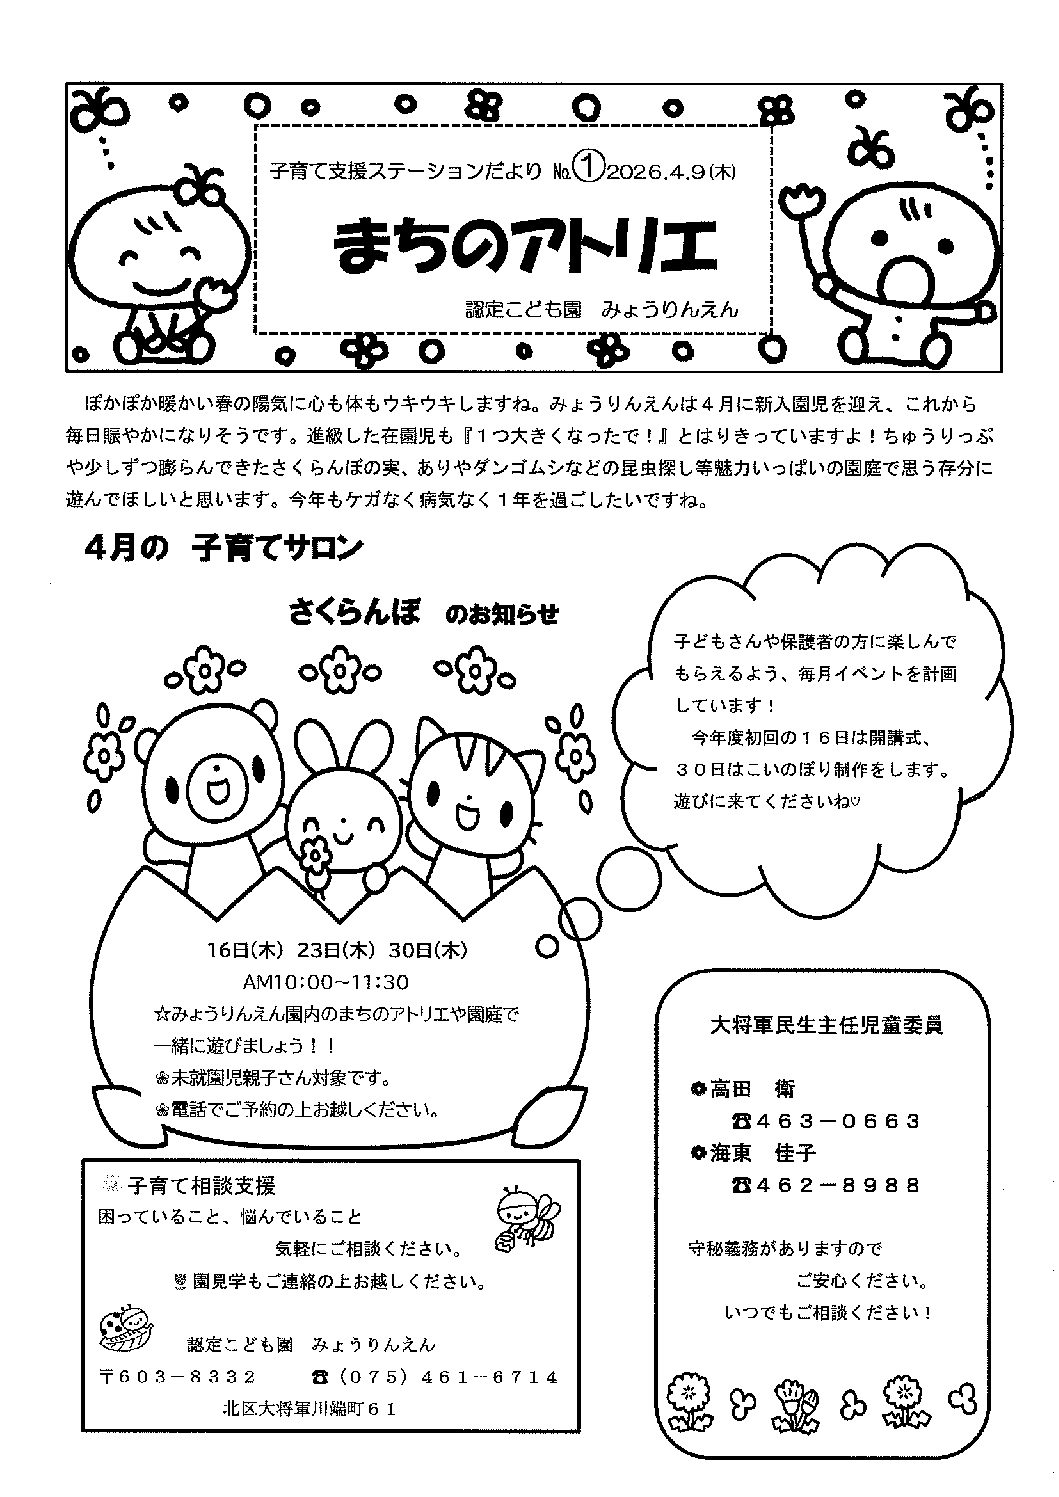 子育て支援ステーションだより №①2026.4.9(木)
まちのアトリエ
認定こども園　みょうりんえん
ぽかぽか暖かい春の陽気に心も体もウキウキしますね。みょうりんえんは４月に新入園児を迎え、これから
毎日賑やかになりそうです。進級した在園児も『１つ大きくなったで！』とはりきっていますよ！ちゅうりっぷ
や少しずつ膨らんできたさくらんぼの実、ありやダンゴムシなどの昆虫探し等魅力いっぱいの園庭で思う存分に
遊んでほしいと思います。今年もケガなく病気なく１年を過ごしたいですね。
４月の　子育てサロン
さくらんぼ　のお知らせ
子どもさんや保護者の方に楽しんで
もらえるよう、毎月イベントを計画
しています！
今年度初回の１６日は開講式、
３０日はこいのぼり制作をします。
遊びに来てくださいね♡
16日(木)　23日(木)　30日(木)
AM10:00~11:30
☆みょうりんえん園内のまちのアトリエや園庭で
一緒に遊びましょう！！
❀未就園児親子さん対象です。
❀電話でご予約の上お越しください。
子育て相談支援
困っていること、悩んでいること
気軽にご相談ください。
園見学もご連絡の上お越しください。
認定こども園　みょうりんえん
〒６０３－８３３２　　☎（０７５）４６１－６７１４
北区大将軍川端町６１
大将軍民生主任児童委員
✿高田　衛
☎４６３－０６６３
✿海東　佳子
☎４６２－８９８８
守秘義務がありますので
ご安心ください。
いつでもご相談ください！